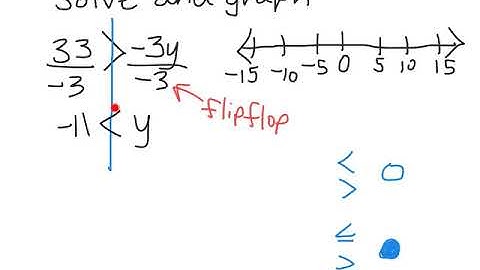 solve and graph
33 > -3y
-3 -3
flipflop
-11 < y
-15 -10 -5 0 5 10 15
<
>
≤
>